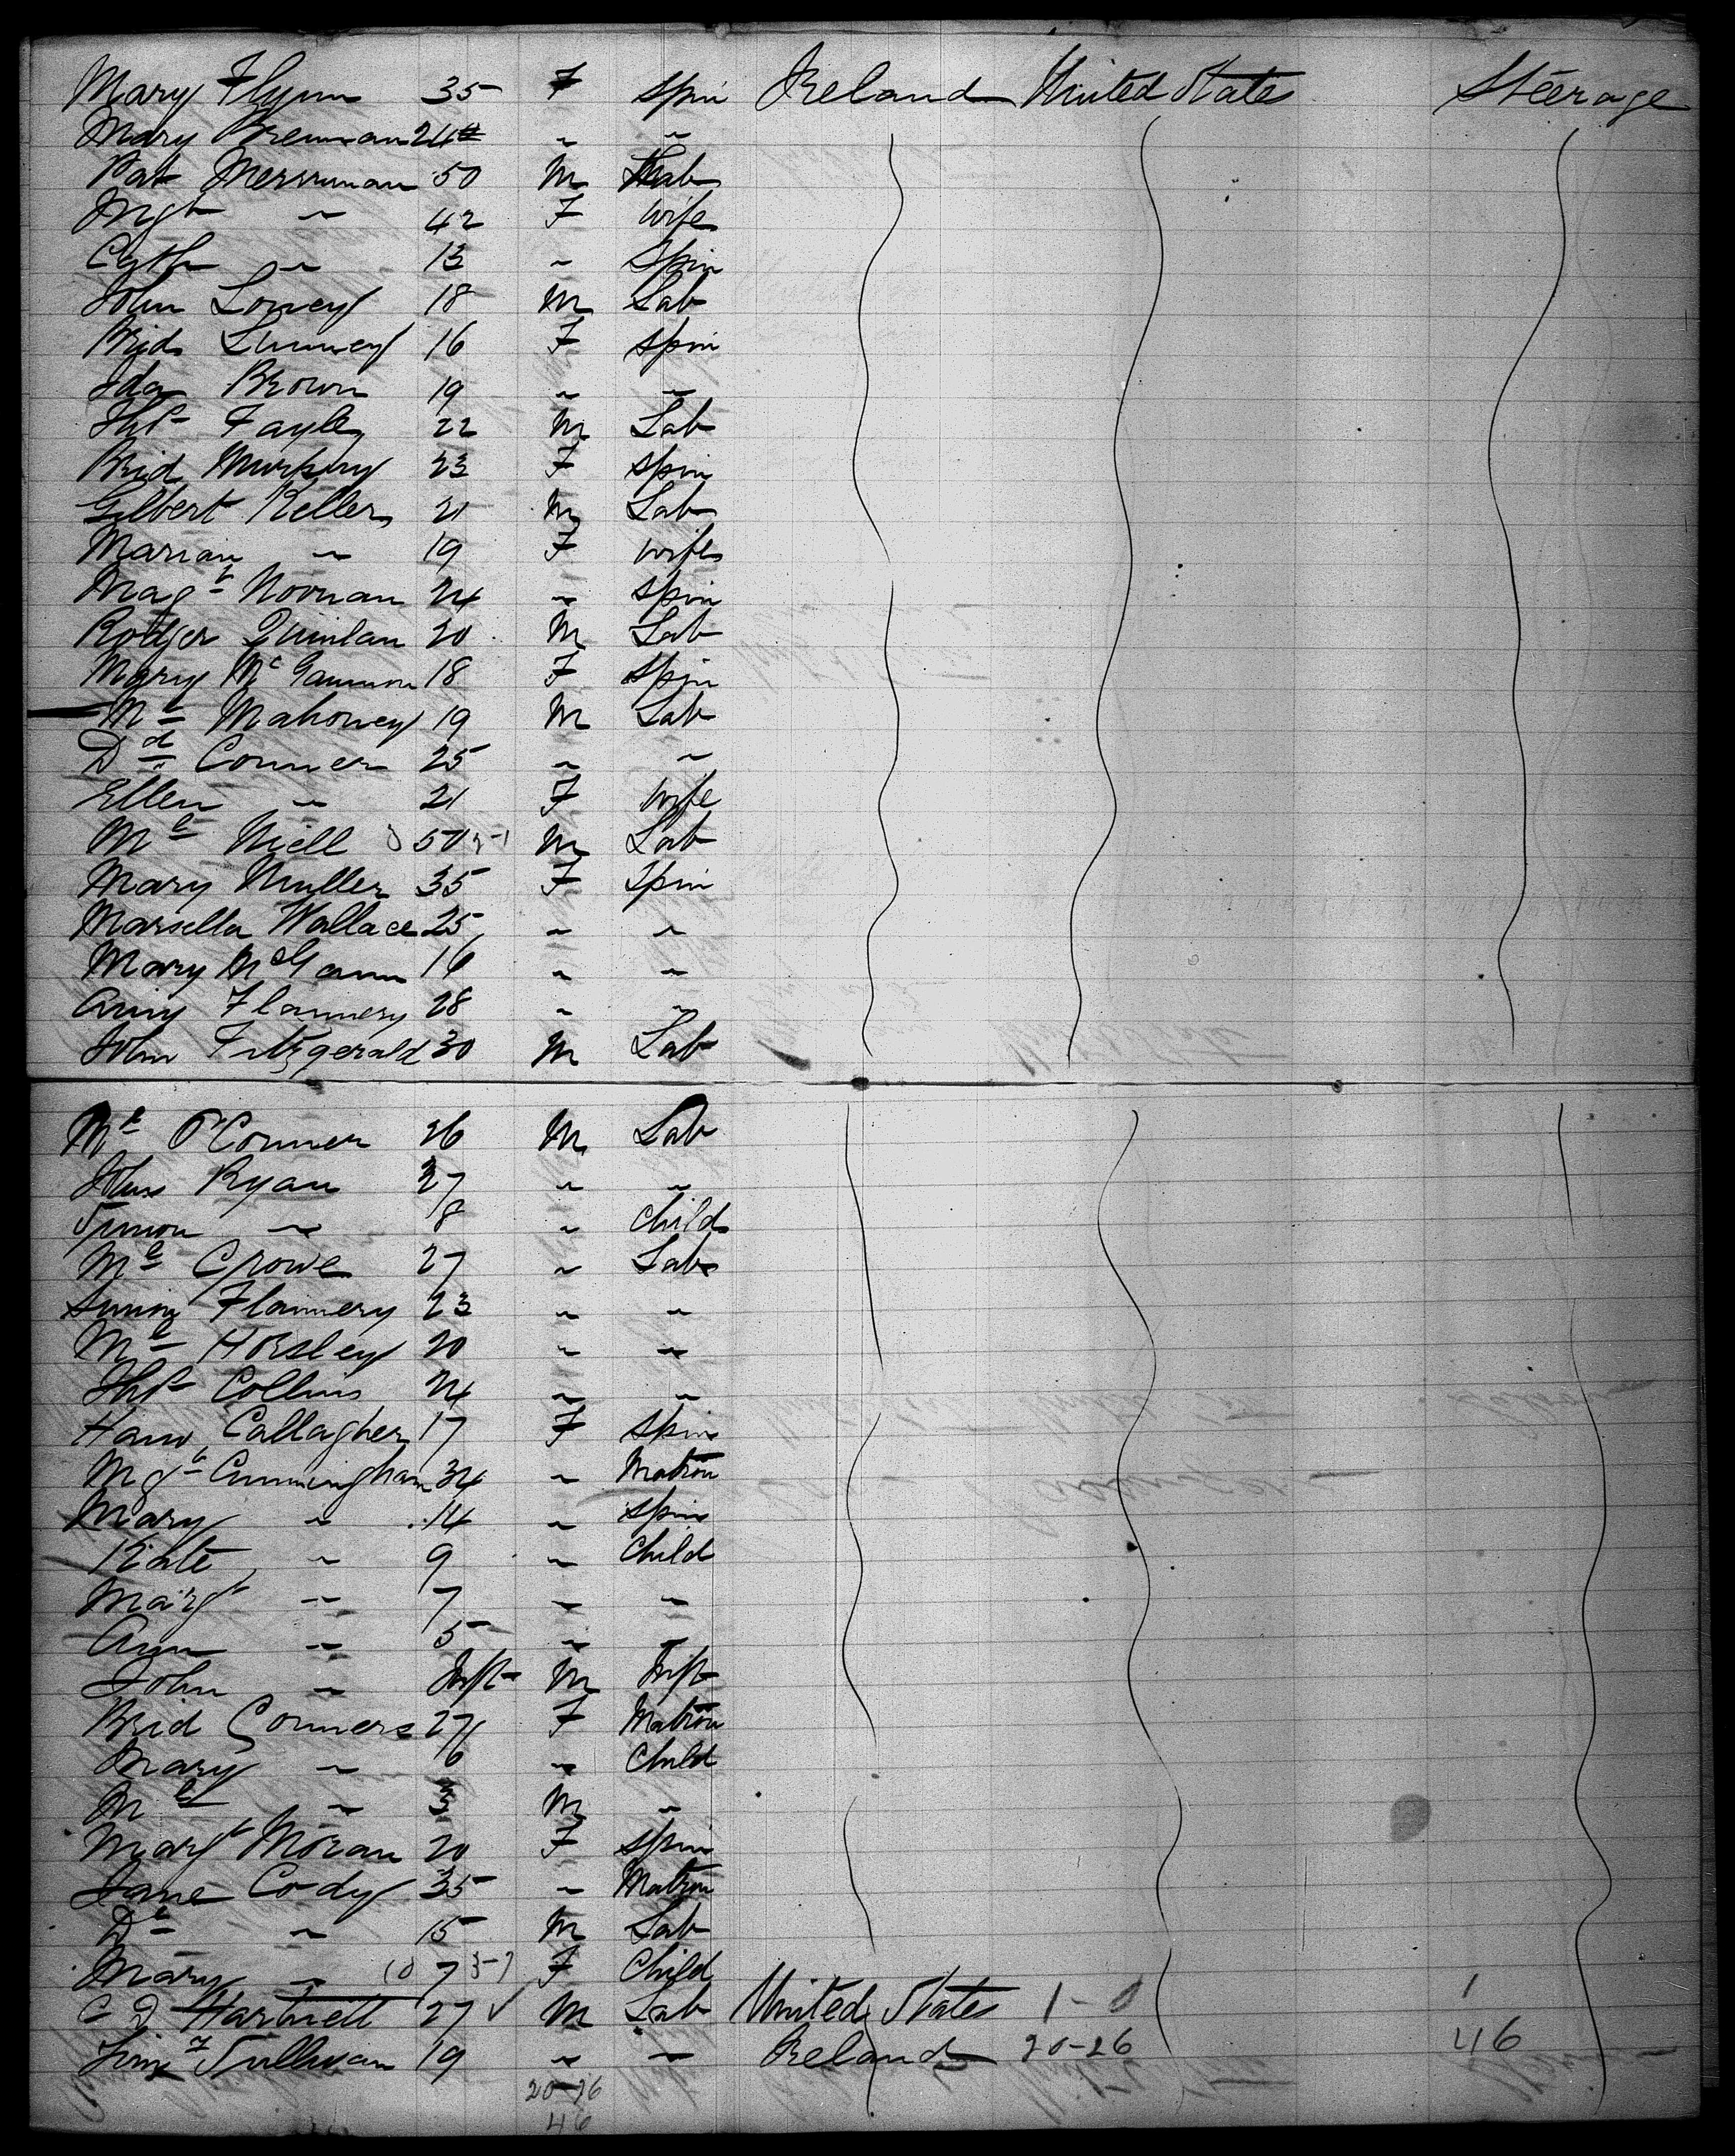 Mary Flynn 35 F Spin Ireland United States Steerage
Mary Brennan 24 " "
Pat Merriman 50 M Lab
Mgt " 42 F Wife
Cath " 13 " Spin
John Lowey 18 M Lab
Brid 16 F Spin
Ida Brown 19 " "
Ths Fayle 22 M Lab
Brid Murphy 23 F Spin
Gilbert Kellers 21 M Lab
Marian " 19 F Wife
Magt Noonan 24 " Spin
Rodger Quinlan 20 M Lab
Mary Mc Gammon 18 F Spin
Ml Mahoney 19 M Lab
Dd Conner 25 " "
Ellen " 21 F Wife
Ml Niell 50 M Lab
Mary Muller 35 F Spin
Marsella Wallace 25 " "
Mary McGann 16 " "
Flannery 28 " "
John Fitzgerald 30 M Lab
Ml O'Conner 26 M Lab
John Ryan 27 " "
" 8 " Child
Ml Crowe 27 " Lab
Flannery 23 " "
Ml Horsley 20 " "
Ths Collins 24 " "
Hano Callagher 17 F Spin
Mgt Cunningham 34 " Matron
Mary " 14 " Spin
Kate " 9 " Child
Margt " 7 " "
Ann " 5 " "
John " Inft M Inft
Brid Conners 27 F Matron
Mary " 6 " Child
Ml " 3 M "
Margt Moran 20 F Spin
Jane Cody 35 " Matron
" 15 M Lab
Mary " 7 F Child
C D Hartnett 27 M Lab United States 1-0 1
Sullivan 19 " " Ireland 20-26 46
20-26
46